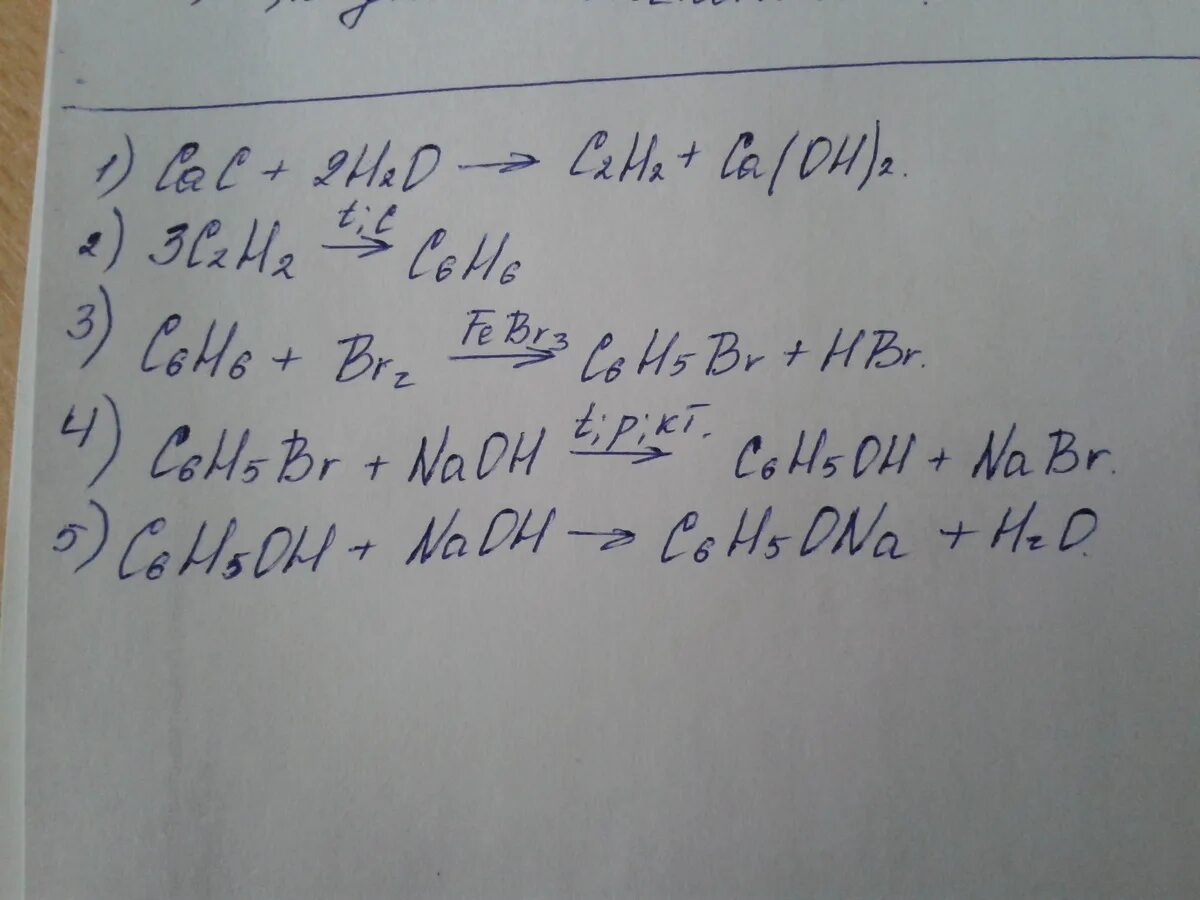 1) CaC + 2H₂O → C₂H₂ + Ca(OH)₂.
2) 3C₂H₂ t;c → C₆H₆
3) C₆H₆ + Br₂ FeBr₃ → C₆H₅Br + HBr.
4) C₆H₅Br + NaOH t;p;кт. → C₆H₅OH + NaBr.
5) C₆H₅OH + NaOH → C₆H₅ONa + H₂O.